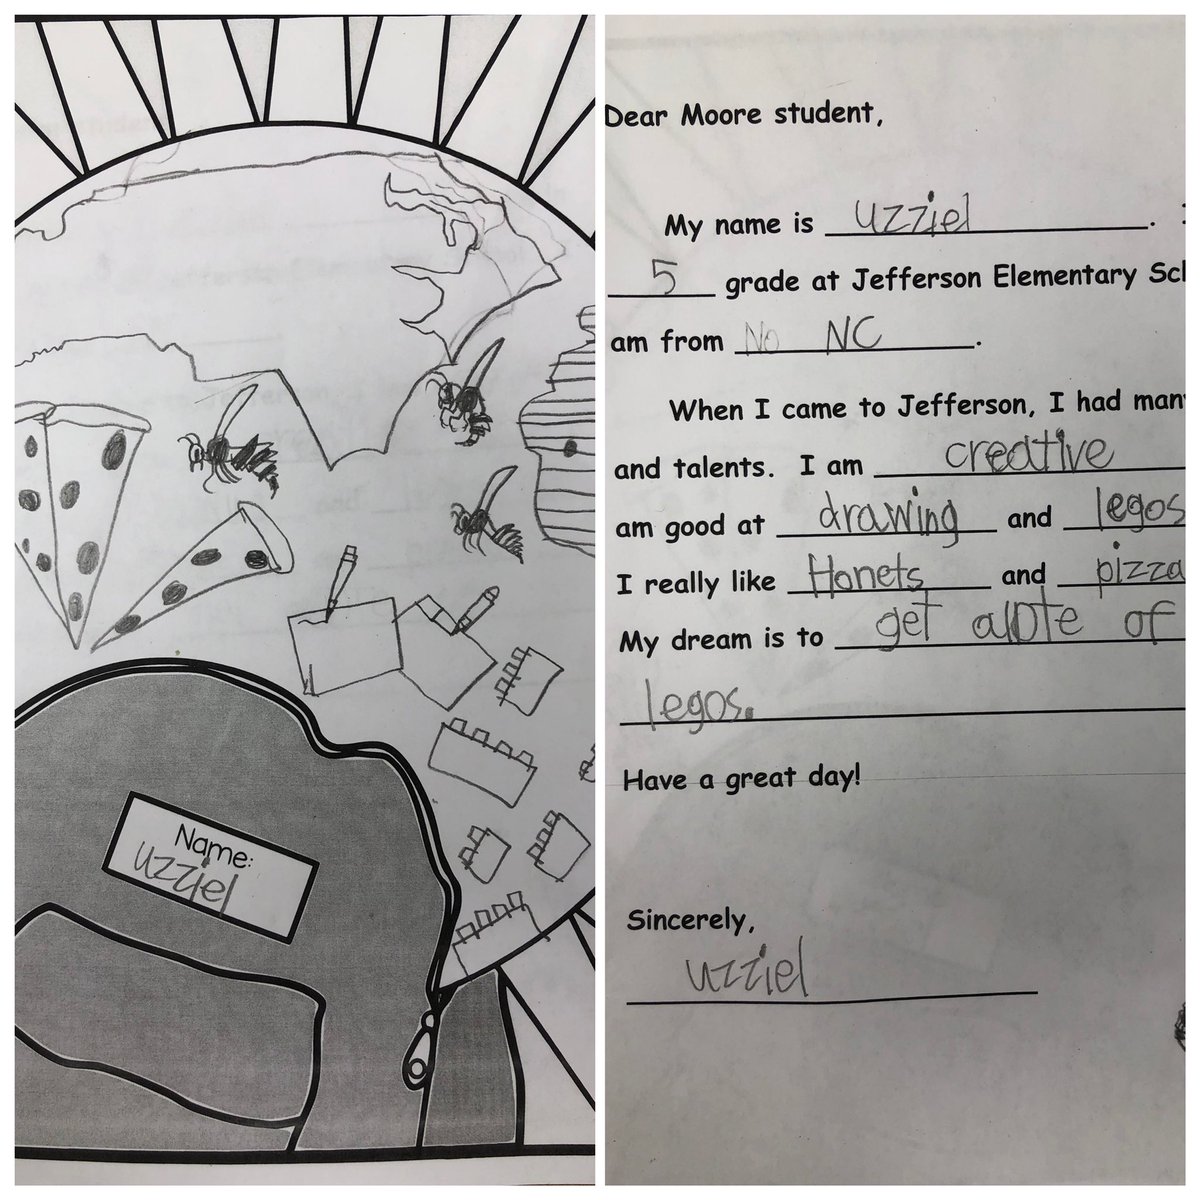 Name:
uzziel
Dear Moore student,
My name is uzziel.
5 grade at Jefferson Elementary
am from No NC.
When I came to Jefferson, I had
and talents. I am creative
am good at drawing and legos
I really like Honets and pizza
My dream is to get alote of
legos.
Have a great day!
Sincerely,
uzziel